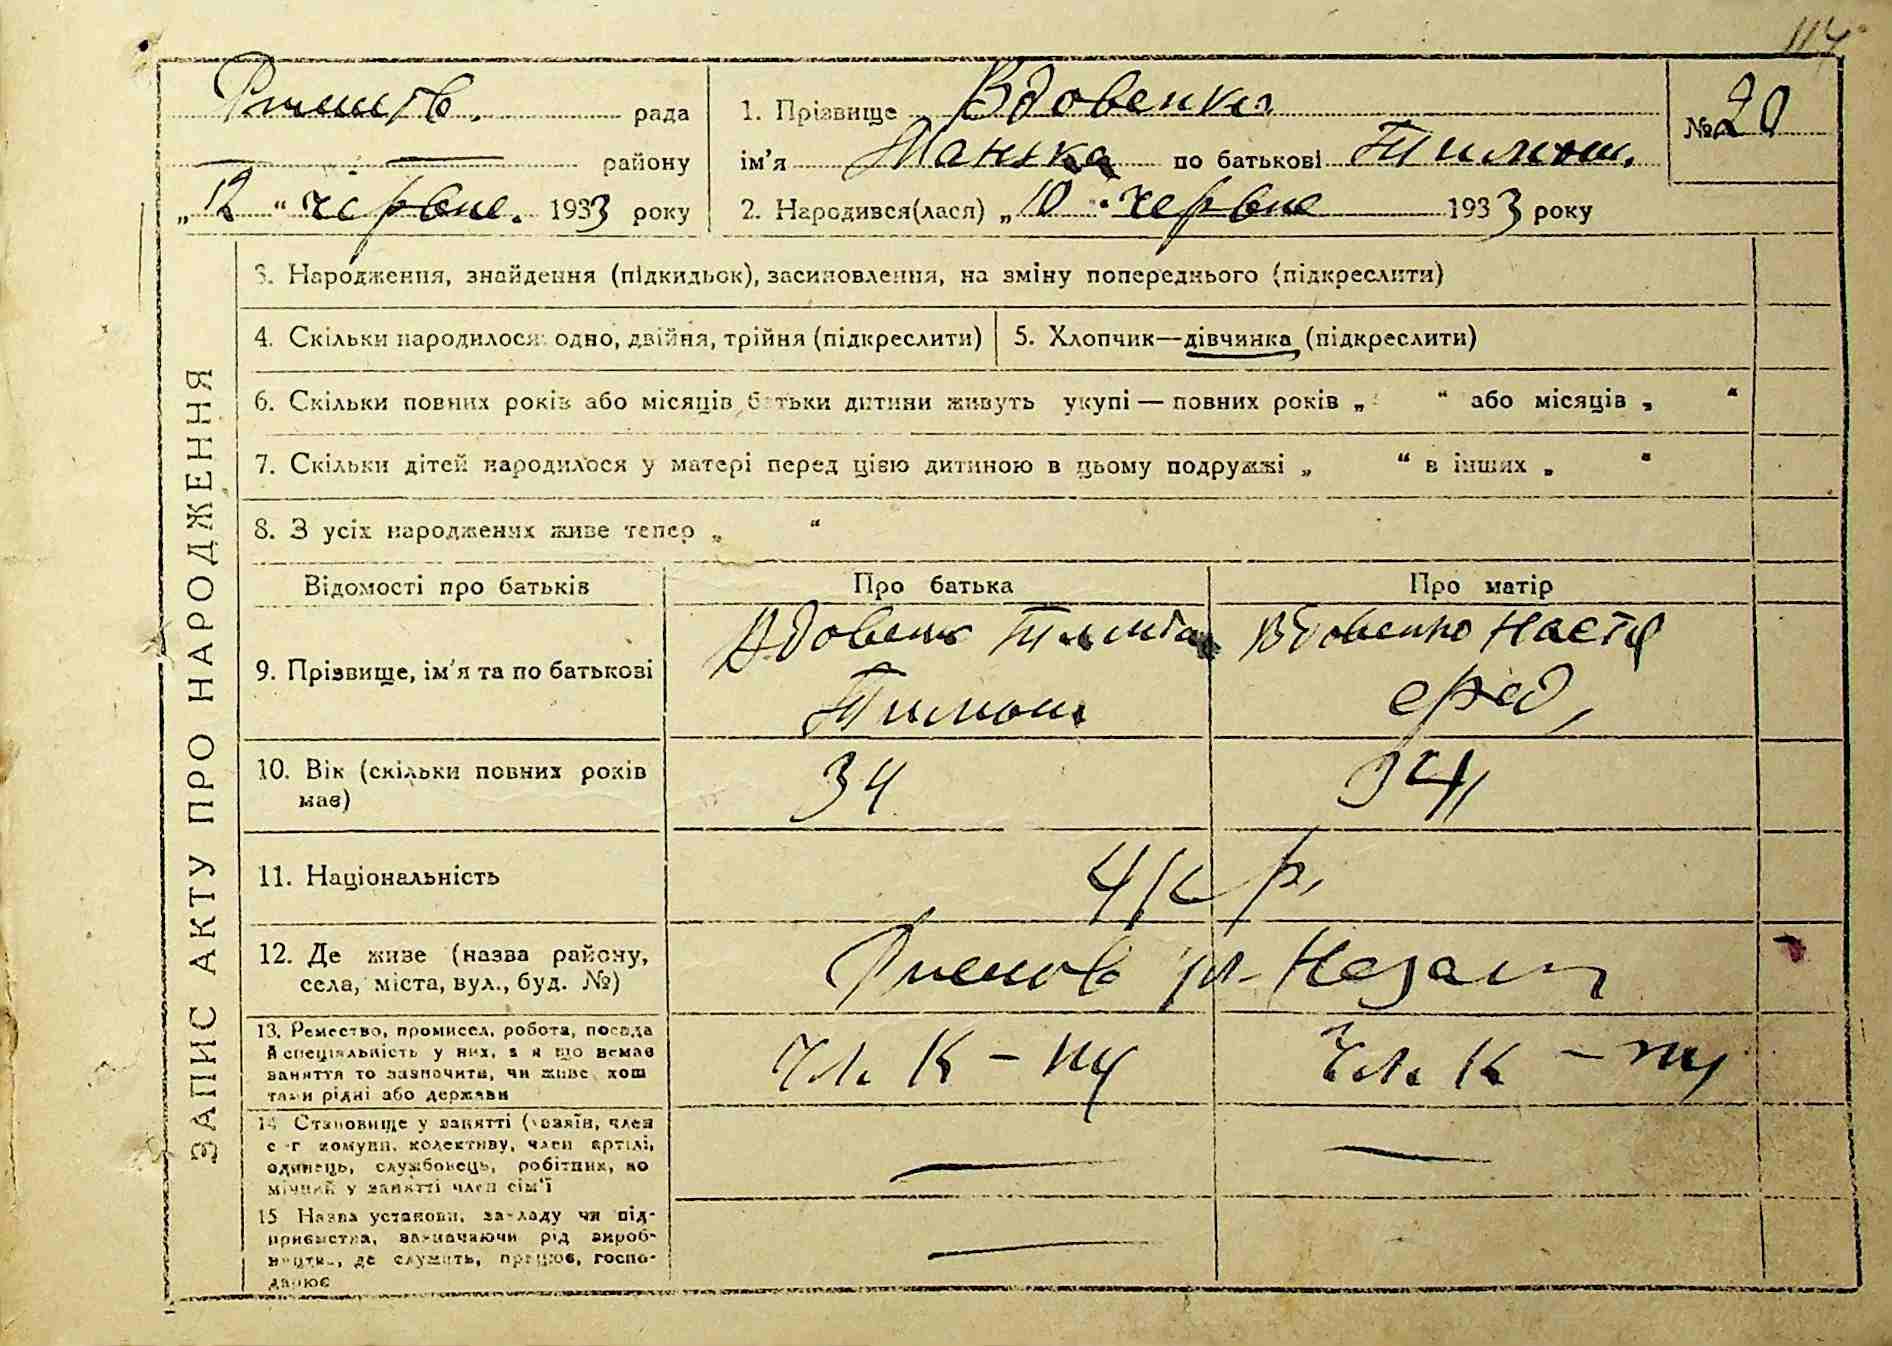 114
рада
1. Прізвище Вдовенко
№ 20
району
ім'я Манька по батькові Тимош.
„12“ червне. 1933 року
2. Народився(лася) „10“ червне 1933 року
ЗАПИС АКТУ ПРО НАРОДЖЕННЯ
3. Народження, знайдення (підкидьок), засиновлення, на зміну попереднього (підкреслити)
4. Скільки народилося: одно, двійня, трійня (підкреслити)
5. Хлопчик—дівчинка (підкреслити)
6. Скільки повних років або місяців батьки дитини живуть укупі — повних років „ “ або місяців „ “
7. Скільки дітей народилося у матері перед цією дитиною в цьому подружжі „ “ в інших „ “
8. З усіх народжених живе тепер „ “
Відомості про батьків
Про батька
Про матір
9. Прізвище, ім'я та по батькові
Вдовенко
Тимош
Вдовенко Настя
10. Вік (скільки повних років
має)
34
34
11. Національність
укр.
12. Де живе (назва району,
села, міста, вул., буд. №)
13. Ремество, промисел, робота, посада
й спеціяльність у них, а як що немає
заняття то зазначити, чи живе кош
тами рідні або держави
Чл. К-пу
Чл. К-пу
14 Становище у занятті (хазяїн, член
с-г комуни, колективу, член артілі,
одинець, службовець, робітник, по
мічний у занятті член сім'ї
15 Назва установи, закладу чи під-
приємства, зазначаючи рід вироб-
ництва, де служить, працює, госпо-
дарює